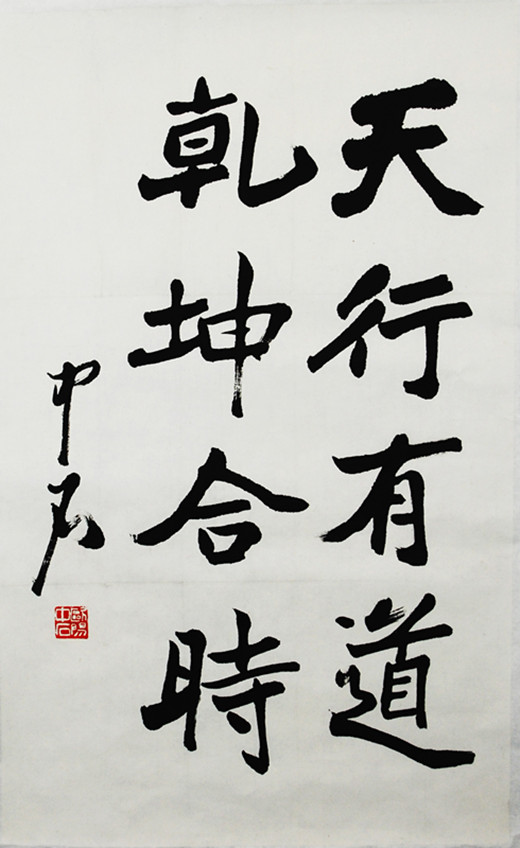 天行有道
乾坤合時
中石
歐陽中石